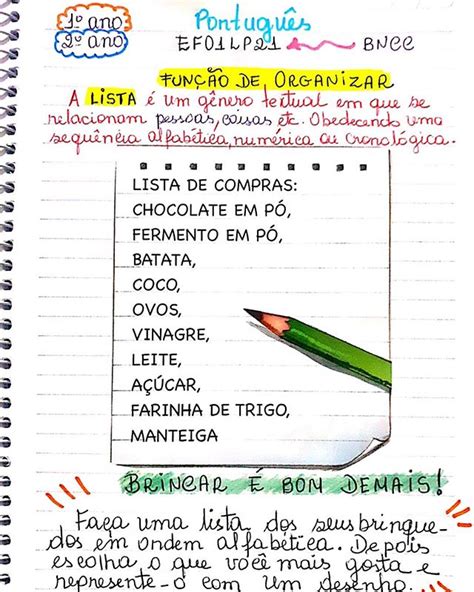 1º ano
2º ano
Português
EF01LP21 BNCC
FUNÇÃO DE ORGANIZAR
A LISTA é um gênero textual em que se
relacionam pessoas, coisas etc. Obedecendo uma
sequência alfabética, numérica ou cronológica.
LISTA DE COMPRAS:
CHOCOLATE EM PÓ,
FERMENTO EM PÓ,
BATATA,
COCO,
OVOS,
VINAGRE,
LEITE,
AÇÚCAR,
FARINHA DE TRIGO,
MANTEIGA
BRINCAR É BOM DEMAIS!
Faça uma lista dos seus brinque-
dos em ordem alfabética. Depois
escolha o que você mais gosta e
represente-o com um desenho.